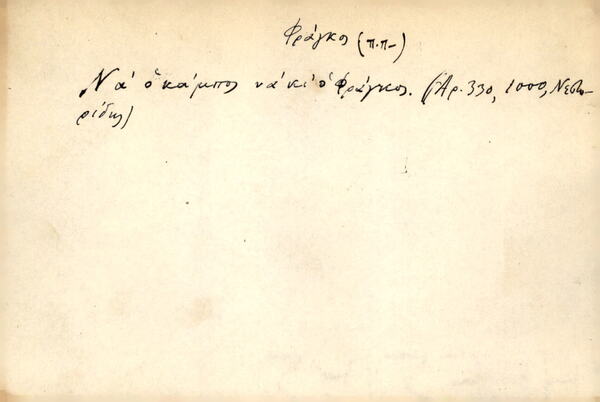 Φράγκος (π.π-)
Νά ὁ κάμπος νά κι ὁ Φράγκος. (Ἀρ. 330, 1000, Νεστο-
ρίδης)